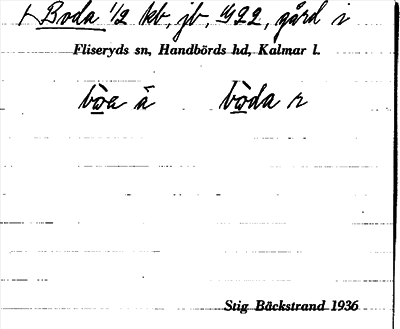 Boda ½ kb, jb, 1922, gård i
Fliseryds sn, Handbörds hd, Kalmar l.
bòa ä bòda r
Stig Bäckstrand 1936